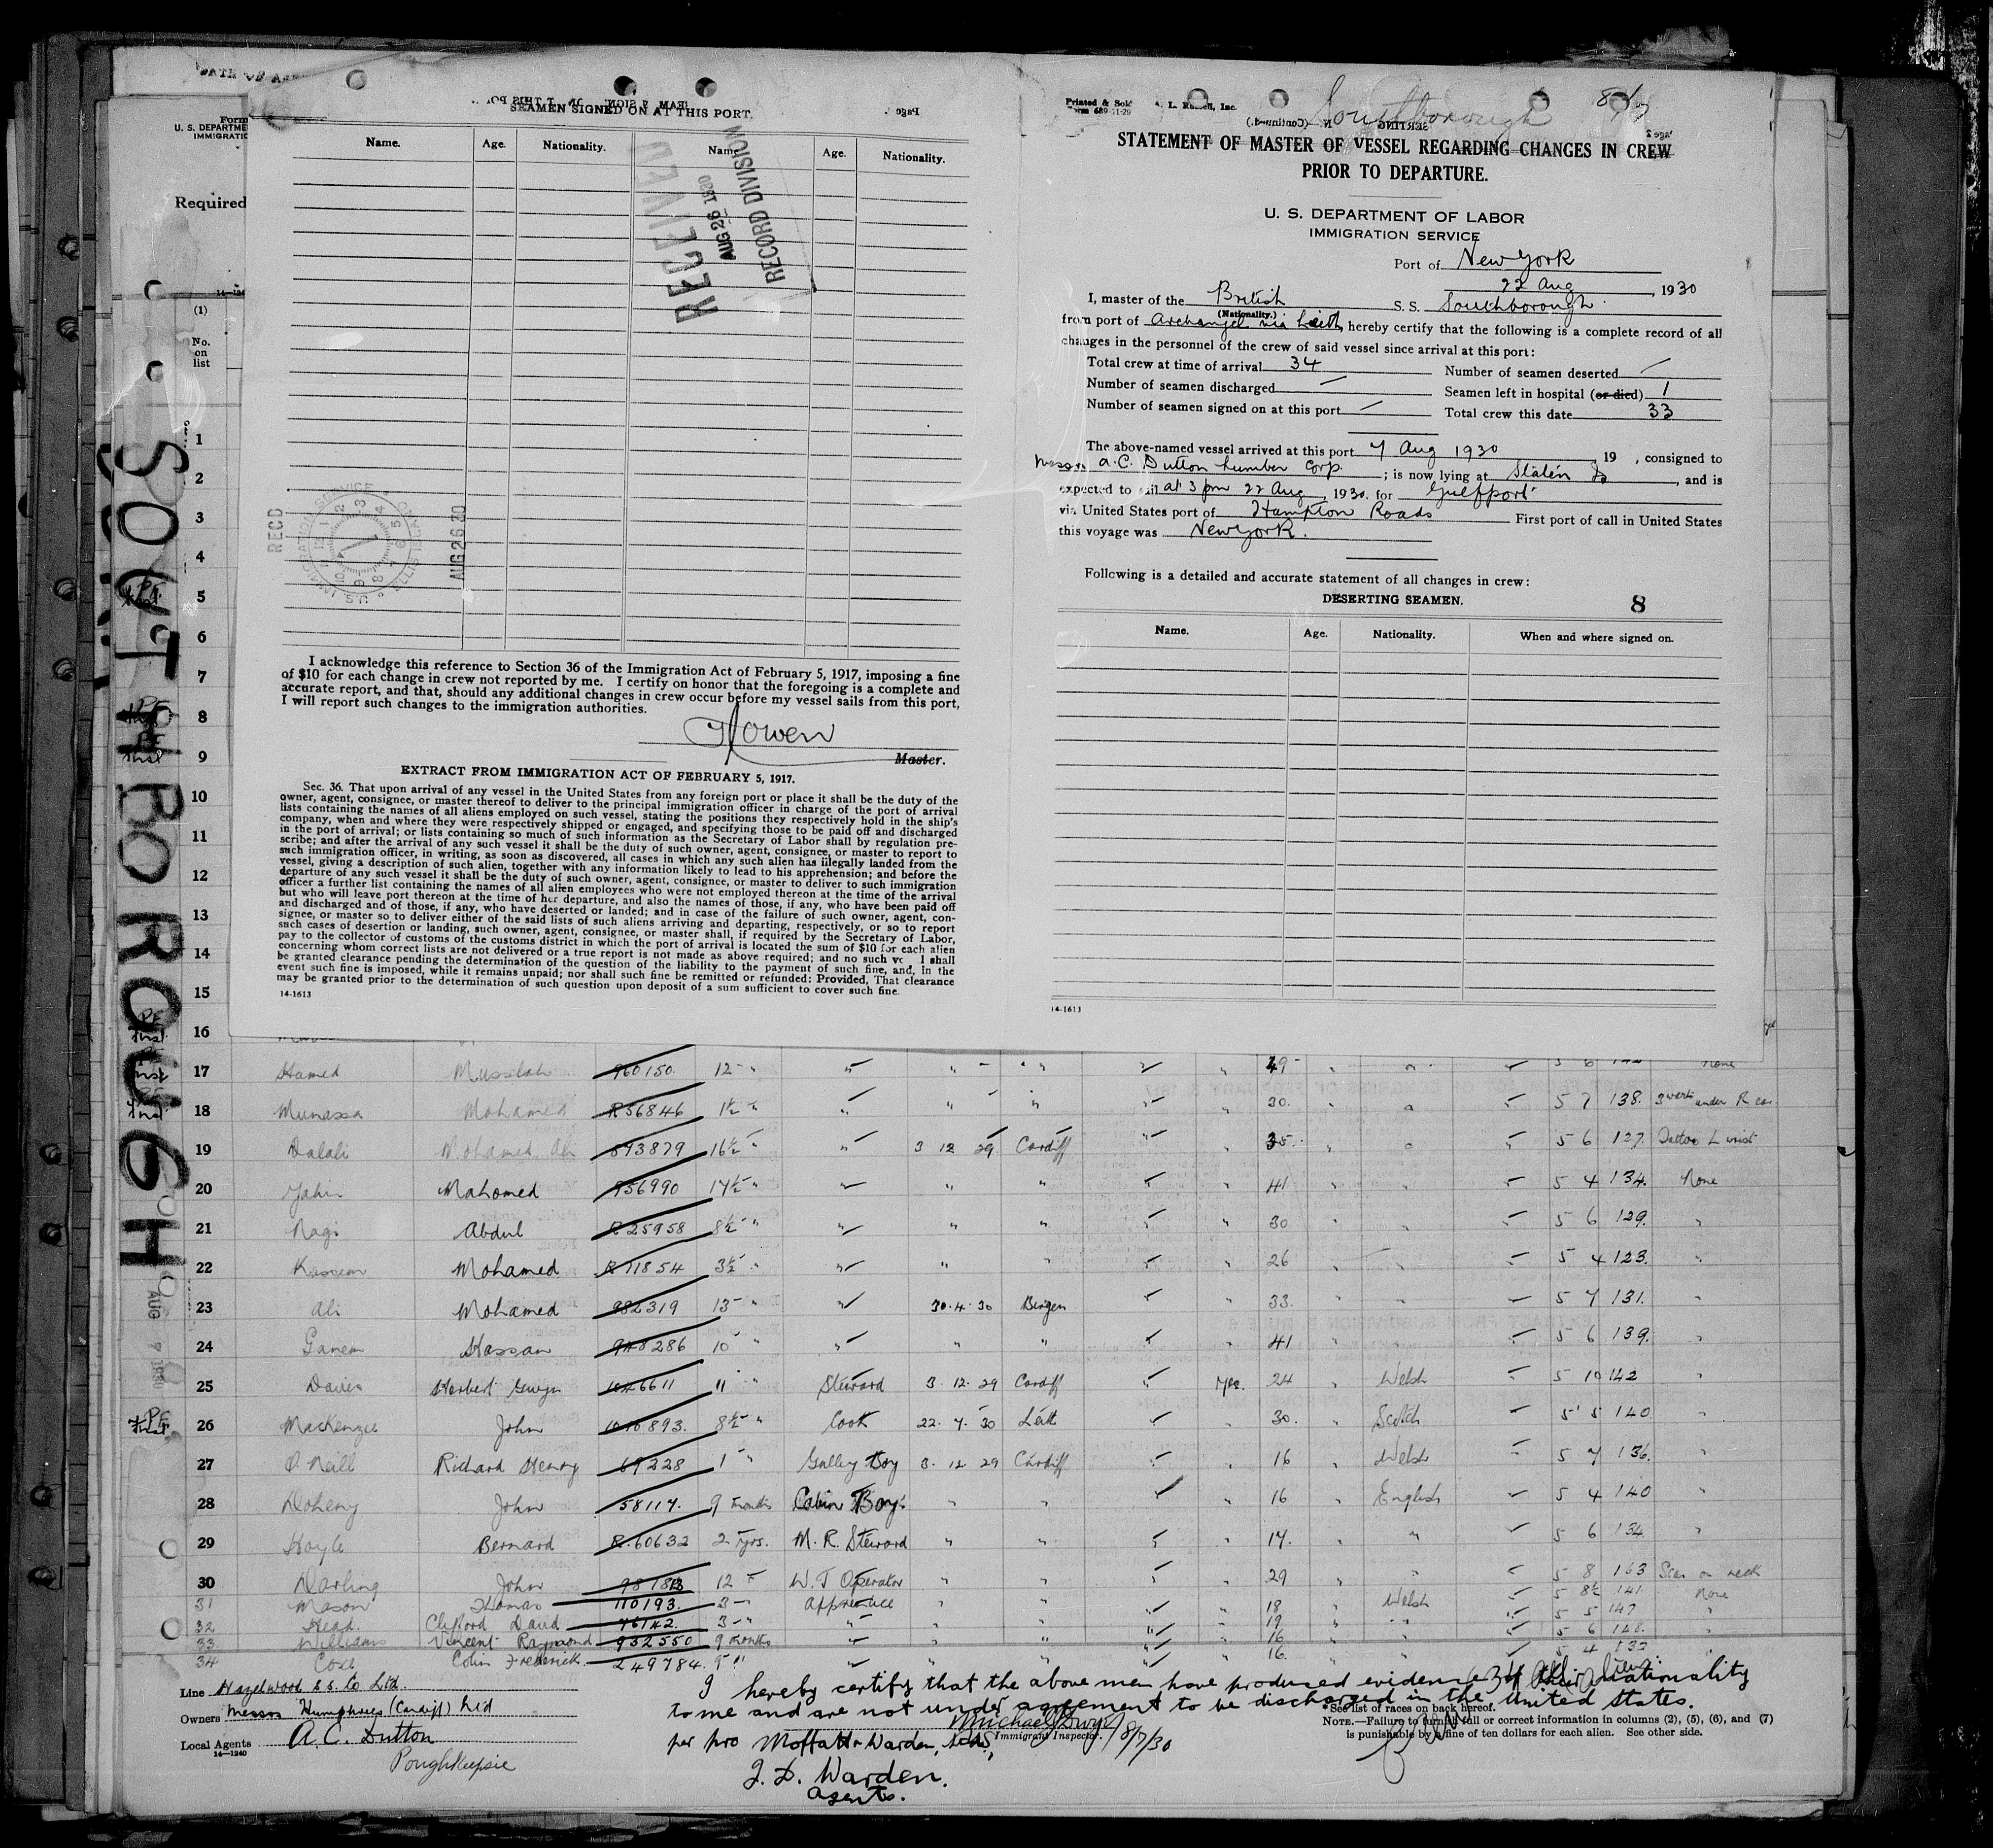 SEAMEN SIGNED ON AT THIS PORT.
Name. Age. Nationality. Name. Age. Nationality.
RECEIVED
AUG 26 1930
RECORD DIVISION
RECD
U.S. IMMIGRATION SERVICE ELLIS ISLAND
AUG 26 30
I acknowledge this reference to Section 36 of the Immigration Act of February 5, 1917, imposing a fine
of $10 for each change in crew not reported by me. I certify on honor that the foregoing is a complete and
accurate report, and that, should any additional changes in crew occur before my vessel sails from this port,
I will report such changes to the immigration authorities.
Owen
Master.
EXTRACT FROM IMMIGRATION ACT OF FEBRUARY 5, 1917.
Sec. 36. That upon arrival of any vessel in the United States from any foreign port or place it shall be the duty of the
owner, agent, consignee, or master thereof to deliver to the principal immigration officer in charge of the port of arrival
lists containing the names of all aliens employed on such vessel, stating the positions they respectively hold in the ship's
company, when and where they were respectively shipped or engaged, and specifying those to be paid off and discharged
in the port of arrival; or lists containing so much of such information as the Secretary of Labor shall by regulation pre-
scribe; and after the arrival of any such vessel it shall be the duty of such owner, agent, consignee, or master to report to
such immigration officer, in writing, as soon as discovered, all cases in which any such alien has illegally landed from the
vessel, giving a description of such alien, together with any information likely to lead to his apprehension; and before the
departure of any such vessel it shall be the duty of such owner, agent, consignee, or master to deliver to such immigration
officer a further list containing the names of all alien employees who were not employed thereon at the time of the arrival
but who will leave port thereon at the time of her departure, and also the names of those, if any, who have been paid off
and discharged and of those, if any, who have deserted or landed; and in case of the failure of such owner, agent, con-
signee, or master so to deliver either of the said lists of such aliens arriving and departing, respectively, or so to report
such cases of desertion or landing, such owner, agent, consignee, or master shall, if required by the Secretary of Labor,
pay to the collector of customs of the customs district in which the port of arrival is located the sum of $10 for each alien
concerning whom correct lists are not delivered or a true report is not made as above required; and no such ve l shall
be granted clearance pending the determination of the question of the liability to the payment of such fine, and, in the
event such fine is imposed, while it remains unpaid; nor shall such fine be remitted or refunded: Provided, That clearance
may be granted prior to the determination of such question upon deposit of a sum sufficient to cover such fine.
14-1613
Printed & Sold L. Russell, Inc.
Form 689-11-29
Southborough
STATEMENT OF MASTER OF VESSEL REGARDING CHANGES IN CREW
PRIOR TO DEPARTURE.
U. S. DEPARTMENT OF LABOR
IMMIGRATION SERVICE
Port of New York
22 Aug, 1930
I, master of the British S. S. Southborough.
(Nationality.)
from port of Archangel via Leith, hereby certify that the following is a complete record of all
changes in the personnel of the crew of said vessel since arrival at this port:
Total crew at time of arrival 34 Number of seamen deserted —
Number of seamen discharged — Seamen left in hospital (or died) 1
Number of seamen signed on at this port — Total crew this date 33
The above-named vessel arrived at this port 7 Aug 1930 19 , consigned to
Messrs A.C. Dutton Lumber Corp. ; is now lying at Staten Is , and is
expected to sail at 3 pm 22 Aug, 1930. for Gulfport
via United States port of Hampton Roads First port of call in United States
this voyage was New York.
Following is a detailed and accurate statement of all changes in crew:
DESERTING SEAMEN. 8
Name. Age. Nationality. When and where signed on.
14-1613
Form
U. S. DEPARTME
IMMIGRATIO
Required
(1)
No.
on
list
SOUTHBOROUGH
AUG 7 1930
1
2
3
4
5
6
7
8
9
10
11
12
13
14
15
16
17 Hamed Musselah 960150. 12 " 49 none
18 Munassa Mohamed R56846 1½ " 30. 5 7 138.
19 Dalali Mohamed Ali 893879 16½ " 3 12 29 Cardiff 35 5 6 127. Tattoo L wrist
20 Mahomed 956990 17½ " " " 41 5 4 134. None
21 Nagi Abdul R25958 8½ " " " 30 5 6 129. "
22 Kassem Mohamed R11854 3½ " " " 26 5 4 123. "
23 Ali Mohamed 982319 13 " 30.4.30 Bergen 33. 5 7 131. "
24 Ganem Hassan 948286 10 " " " 41 5 6 139. "
25 Davies Herbert Gwyn 1046611 11 " Steward 3.12.29 Cardiff yes. 24 " Welsh 5 10 142 "
26 MacKenzie John 1010893. 8½ " Cook 22.7.30 Leith " 30. " Scotch 5 5 140 "
27 O'Neill Richard Henry 69228 1 " Galley Boy 3.12 29 Cardiff " 16 " Welsh 5 7 136. "
28 Doheny John 58117. 9 months Cabin Boy. " " " 16 " English 5 4 140 "
29 Hoyle Bernard R.60632 2 yrs. M. R. Steward " " " 17. " " 5 6 134 "
30 Darling John 12 W. T Operator " " " 29 " " 5 8 163 Scar on neck
31 Mason Thomas 110193. 3 " Apprentice " " 18 " Welsh 5 8½ 141. None
32 Head. Clifford David 76142. 3 " " " " 19 " " 5 5 147 "
33 Williams Vincent Raymond 952550 9 months " " " 16 " " 5 6 "
34 Colin Frederick. 249784. 9 " " " " 16. " " 5 4
I hereby certify that the above men have produced evidence of their nationality
to me and are not under agreement to be discharged in the United States.
Line Hazelwood S.S. Co Ltd.
Owners Messrs Humphries (Cardiff) Ltd
Local Agents A. C. Dutton
14-1240
Poughkeepsie
Immigrant Inspector. 8/7/30
per pro Moffatt & Warden,
J. D. Warden.
Agents.
*See list of races on back hereof.
NOTE.—Failure to furnish full or correct information in columns (2), (5), (6), and (7)
is punishable by a fine of ten dollars for each alien. See other side.